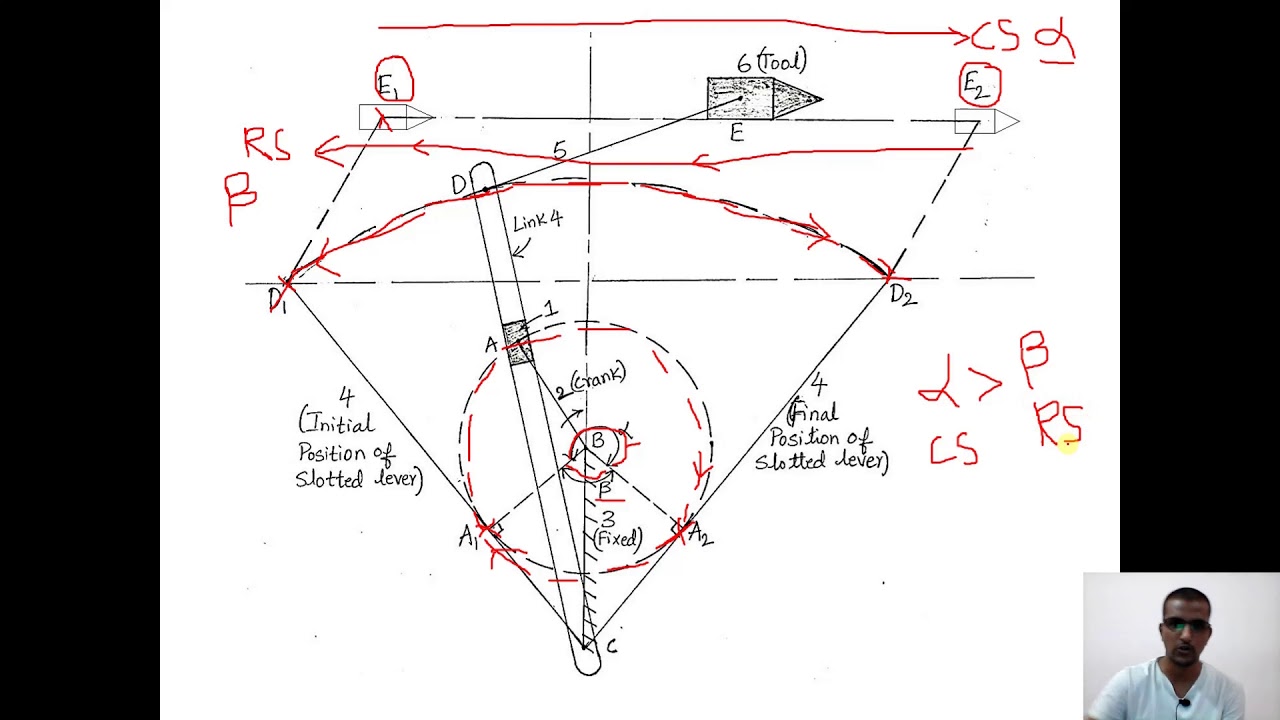 CS α
6 (Tool)
E1
E2
E
RS
β
5
D
Link 4
D1
D2
1
A
2 (Crank)
B
α
β
3
(Fixed)
4
(Initial
Position of
Slotted lever)
4
(Final
Position of
Slotted lever)
α > β
CS RS
A1
A2
C